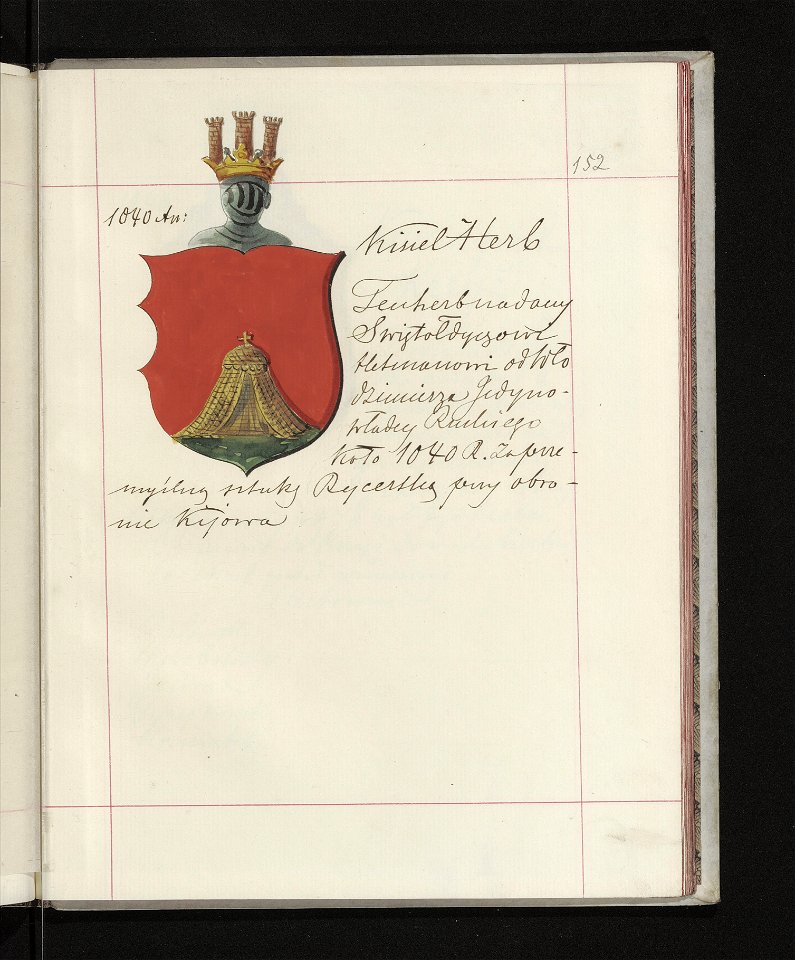 152
1040 An:
Kisiel Herb
Ten herb nadany
Swiętołdyczowi
Hetmanowi od Wło
dzimierza Jedyno-
władcy Ruskiego
Koło 1040 R. Za prze-
myślną sztukę Rycerską przy obro-
nie Kijowa